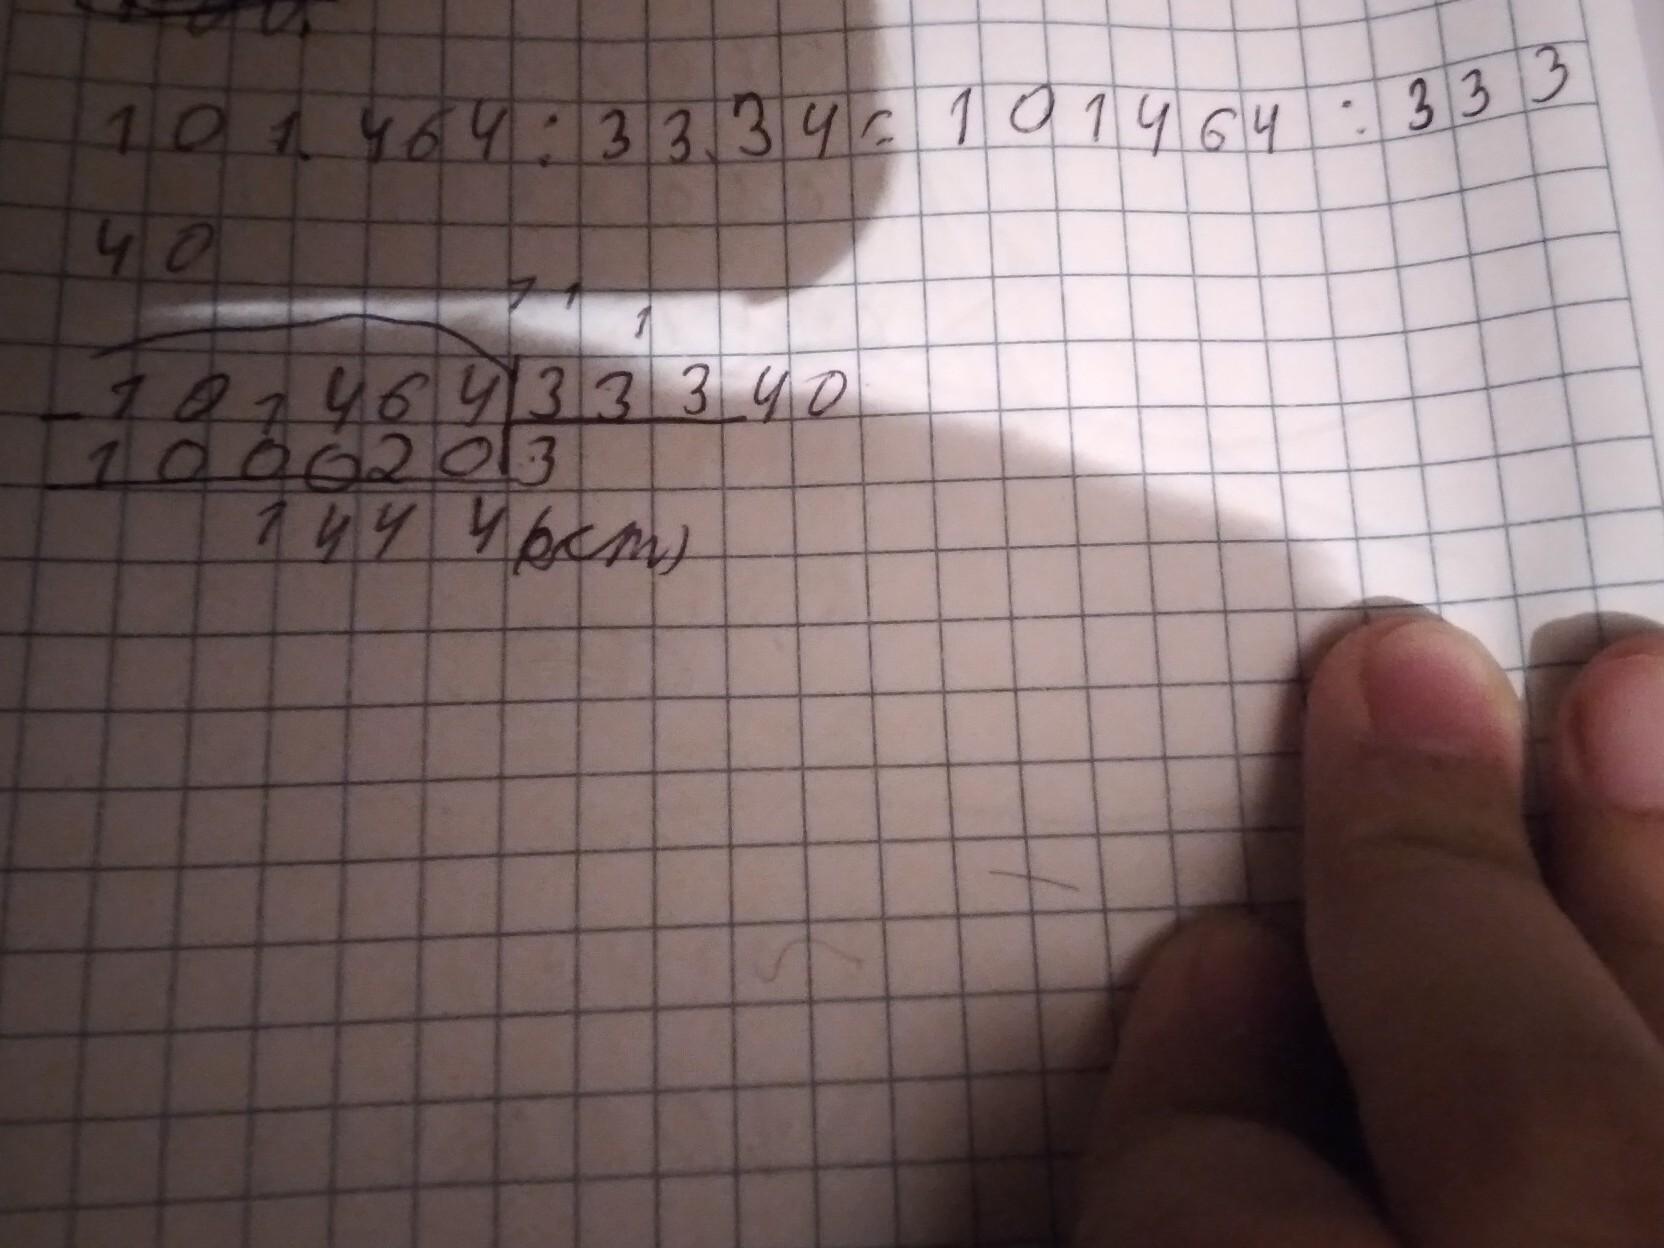 101.464:33.34=101464:333
40
1 1 1
101464 33340
100020 3
1444(ост)